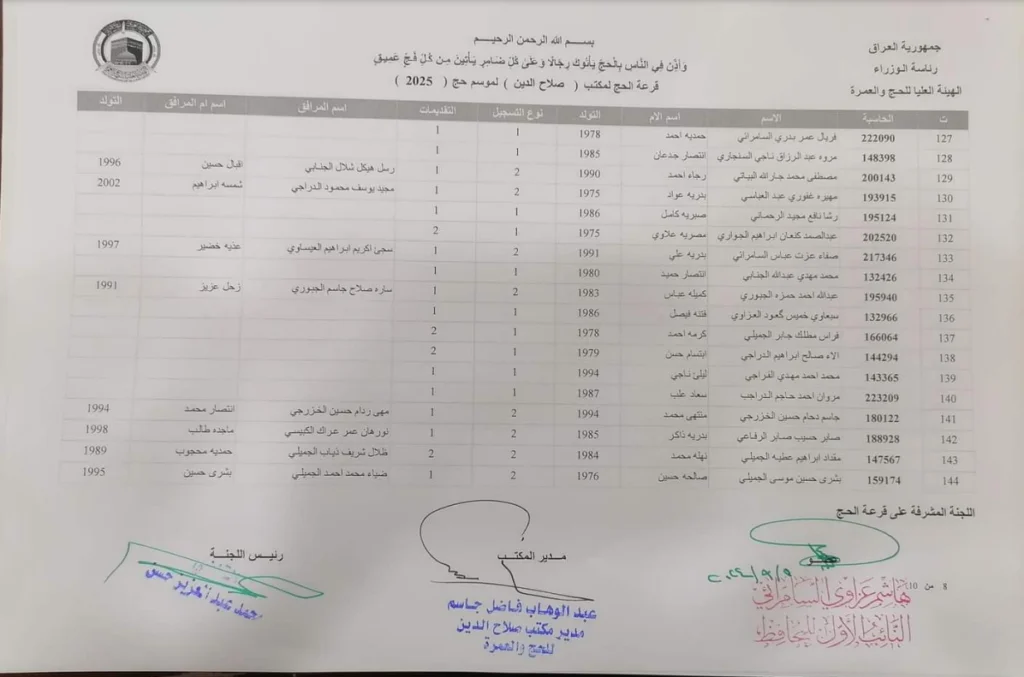 جمهورية العراق
رئاسة الوزراء
الهيئة العليا للحج والعمرة
بسم الله الرحمن الرحيم
وَأَذِّن فِي النَّاسِ بِالْحَجِّ يَأْتُوكَ رِجَالًا وَعَلَىٰ كُلِّ ضَامِرٍ يَأْتِينَ مِن كُلِّ فَجٍّ عَمِيقٍ
قرعة الحج لمكتب ( صلاح الدين ) لموسم حج ( 2025 )
ت الحاسبة الاسم اسم الام التولد نوع التسجيل التقديمات اسم المرافق اسم ام المرافق التولد
127 222090 فريال عمر بدري السامرائي حمديه احمد 1978 1 1
128 148398 مروه عبد الرزاق ناجي السنجاري انتصار جدعان 1985 1 1
129 200143 مصطفى محمد جارالله البياتي رجاء احمد 1990 2 1 رسل هيكل شلال الجنابي اقبال حسين 1996
130 193915 مهيره غفوري عبد العباسي بدريه عواد 1975 2 1 مجيد يوسف محمود الدراجي شمسه ابراهيم 2002
131 195124 رشا نافع مجيد الرحماني صبريه كامل 1986 1 1
132 202520 عبدالصمد كنعان ابراهيم الجواري مصريه علاوي 1975 1 2
133 217346 صفاء عزت عباس السامرائي بدريه علي 1991 2 1 سجئ اكريم ابراهيم العيساوي عذيه خضير 1997
134 132426 محمد مهدي عبدالله الجنابي انتصار حميد 1980 1 1
135 195940 عبدالله احمد حمزه الجبوري كميله عباس 1983 2 1 ساره صلاح جاسم الجبوري زحل عزيز 1991
136 132966 سبعاوي خميس گعود العزاوي فتنه فيصل 1986 1 1
137 166064 فراس مطلك جابر الجميلي كرمه احمد 1978 1 2
138 144294 الاء صالح ابراهيم الدراجي ابتسام حسن 1979 1 2
139 143365 محمد احمد مهدي الفراجي ليلئ ناجي 1994 1 1
140 223209 مروان احمد حاجم الدراجب سعاد علب 1987 1 1
141 180122 جاسم دحام حسين الخزرجي منتهى محمد 1994 2 1 مهى ردام حسين الخزرجي انتصار محمد 1994
142 188928 صابر حسيب صابر الرفاعي بدريه ذاكر 1985 2 1 نورهان عمر عراك الكبيسي ماجده طالب 1998
143 147567 مقداد ابراهيم عطيه الجميلي نهله محمد 1984 2 2 ظلال شريف ذياب الجميلي حمديه محجوب 1989
144 159174 بشرى حسين موسى الجميلي صالحه حسين 1976 2 1 ضياء محمد احمد الجميلي بشرى حسين 1995
اللجنة المشرفة على قرعة الحج
مدير المكتب
رئيس اللجنة
8 من 10
٢٠٢٤/٩/٥
هاشم عزاوي السامرائي
النائب الأول للمحافظ
عبد الوهاب فاضل جاسم
مدير مكتب صلاح الدين
للحج والعمرة
عبد العزيز حسن